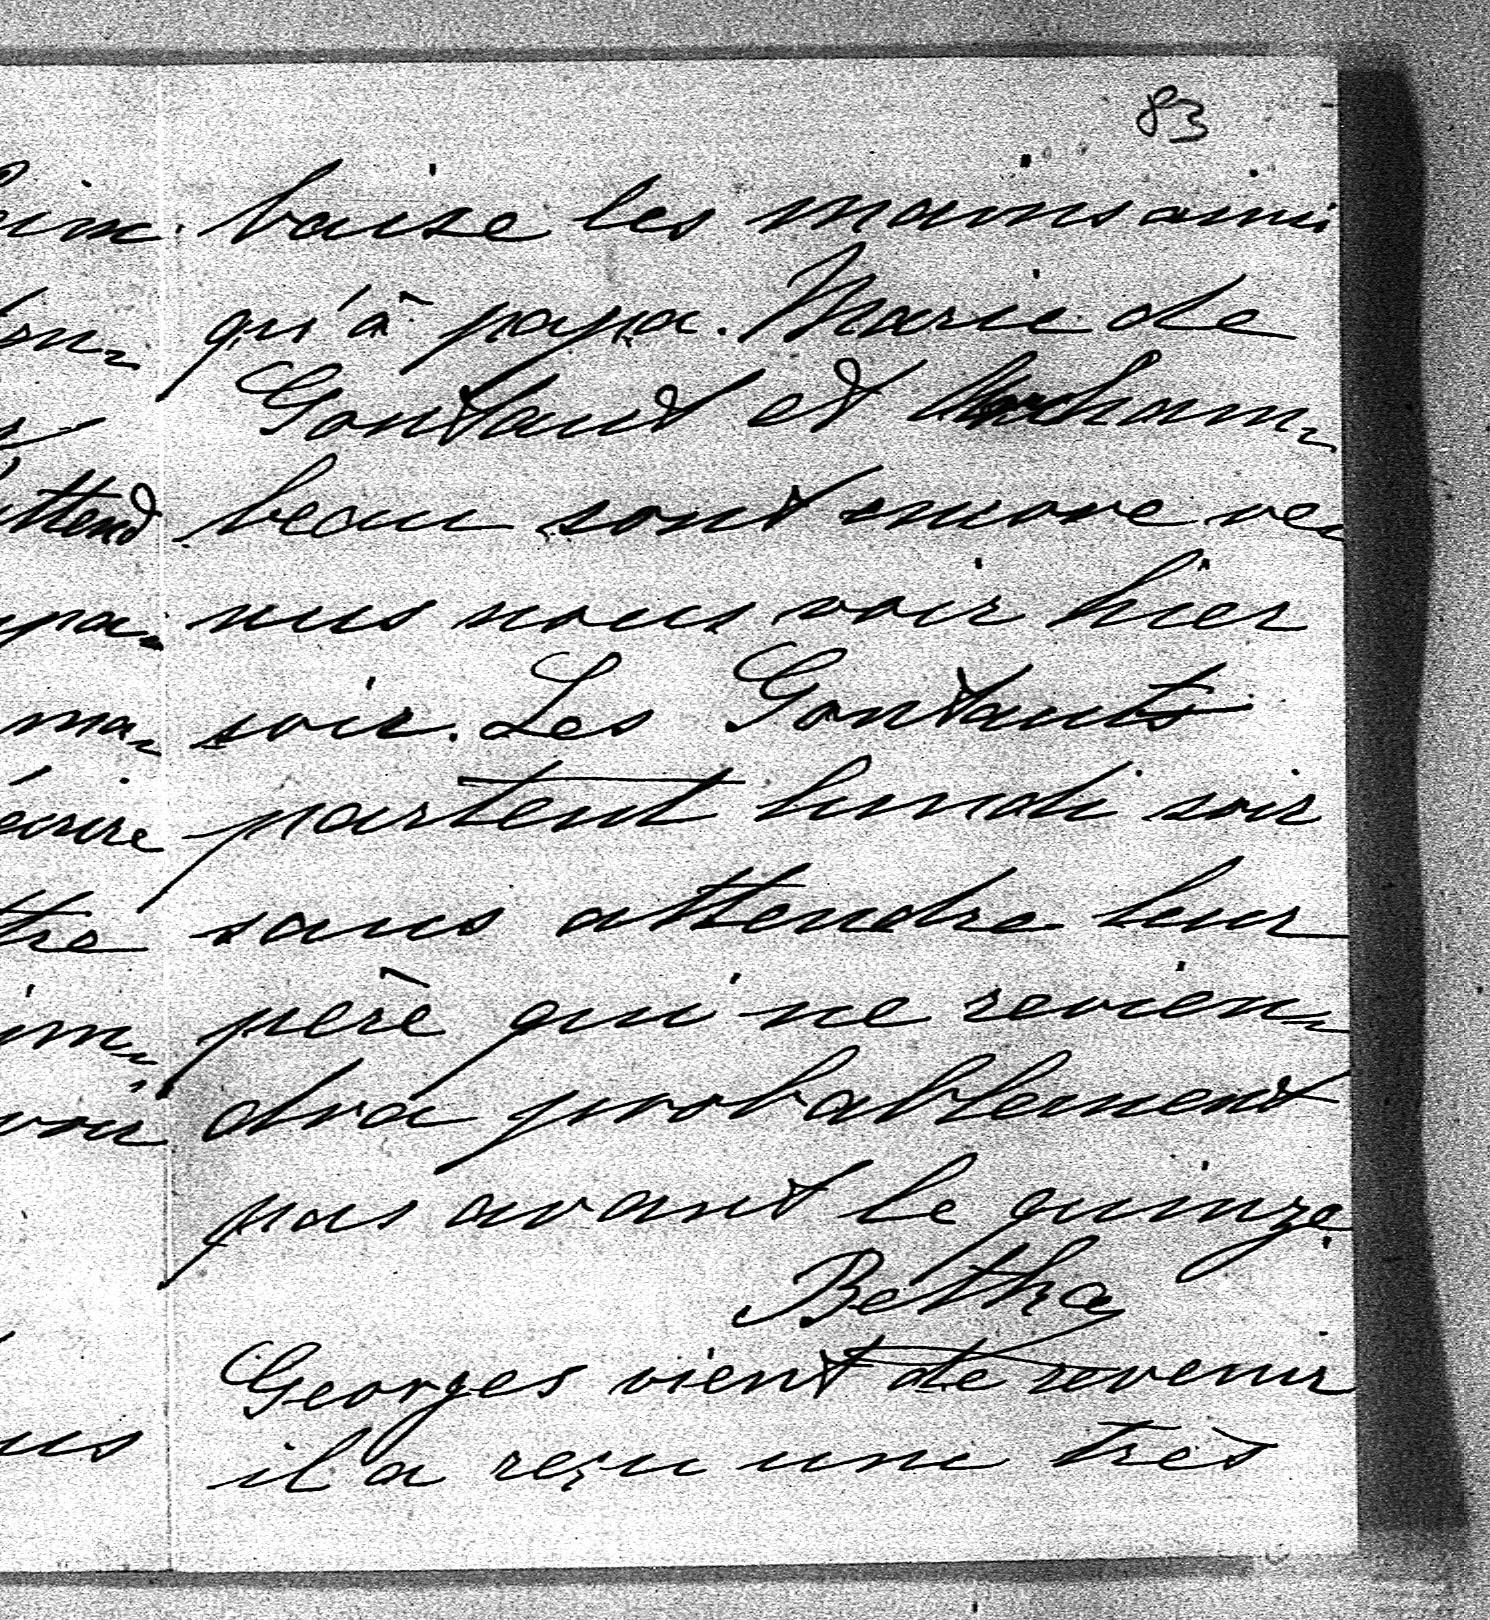 83
baise les mains ainsi
qu'à papa. Marie de
Gontaut et Rocham-
beau sont encore ve-
nus nous voir hier
soir. Les Gontauts
partent lundi soir
sans attendre leur
père qui ne revien-
dra probablement
pas avant le quinze.
Betka
Georges vient de revenir
il a reçu une très
attend
ma-
écrire